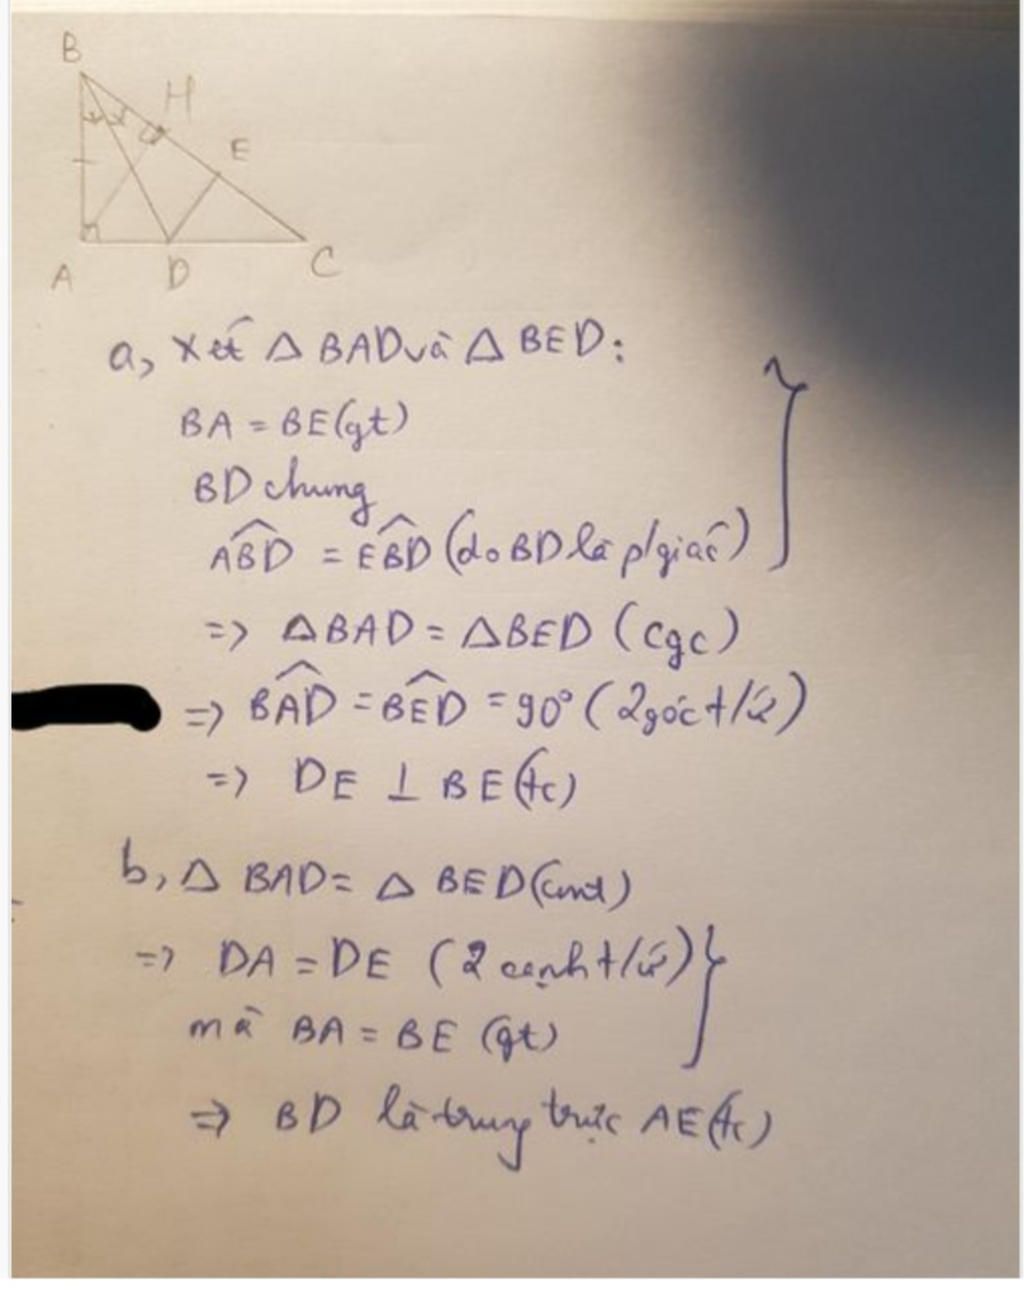 B
H
E
A D C
a, Xét △ BAD và △ BED:
BA = BE (gt)
BD chung
ABD̂ = EBD̂ (do BD là p/giác)
=> △BAD = △BED (cgc)
=> BAD̂ = BED̂ = 90° (2 góc t/ứ)
=> DE ⊥ BE (tc)
b, △ BAD = △ BED (cmt)
=> DA = DE (2 cạnh t/ứ)
mà BA = BE (gt)
=> BD là trung trực AE (tc)